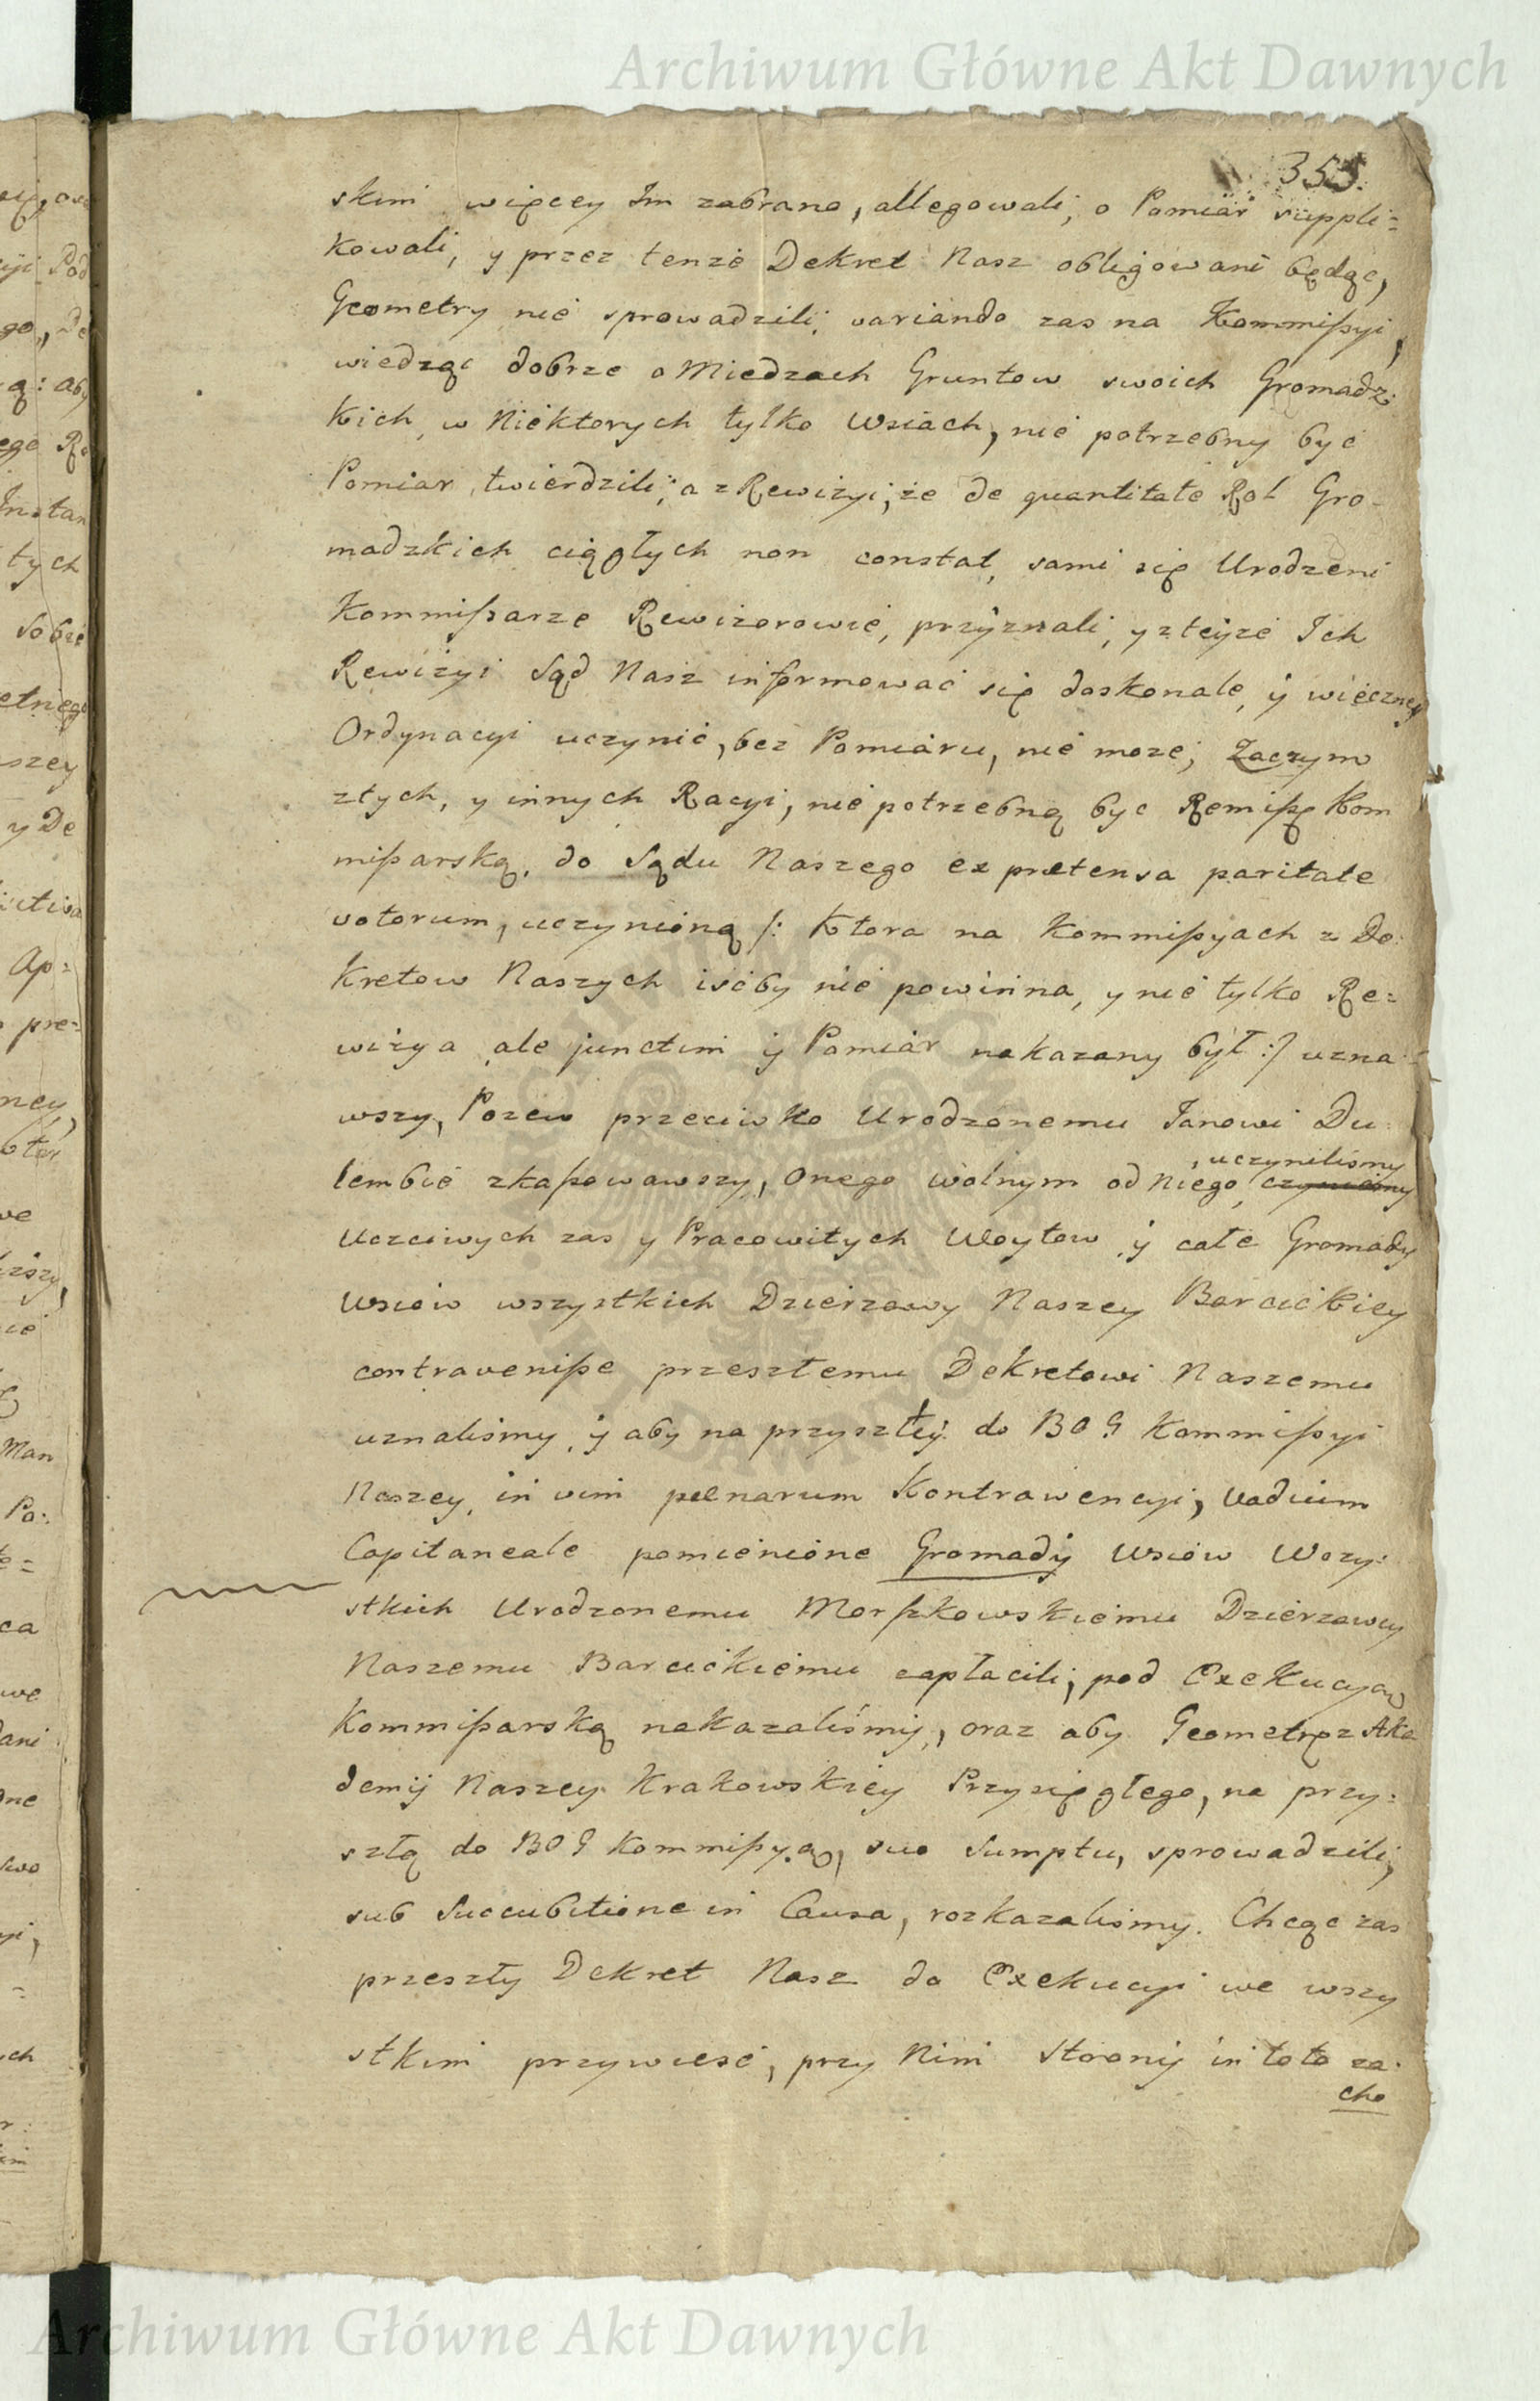 Archiwum Główne Akt Dawnych
355.
skim więcey Im zabrano, allegowali, o Pomiar suppli=
kowali, y przez tenże Dekret Nasz obligowani będąc,
Geometry nie sprowadzili, variando zas na Kommißyi,
wiedząc dobrze o Miedzach Gruntow swoich Gromadz:
kich, w Niektorych tylko Wsiach, nie potrzebny być
Pomiar, twierdzili; a z Rewizyi, że de quantitate Rol Gro-
madzkich ciągłych non constat, sami się Urodzeni
Kommißarze Rewizorowie, przyznali, y z teyże Ich
Rewizyi Sąd Nasz informować się doskonale, y wieczney
Ordynacyi uczynić, bez Pomiaru, nie może; Zaczym
z tych, y innych Racyi, nie potrzebną byc Remißę Kom
mißarską, do Sądu Naszego ex prætensa paritate
votorum, uczynioną /: Ktora na Kommißyach z De:
kretow Naszych iśćby nie powinna, y nie tylko Re=
wizya, ale junctim y Pomiar nakazany był :/ uzna
wszy, Pozew przeciwko Urodzonemu Janowi Du
lembie zkaßowawszy, Onego wolnym od Niego, czyniemy
, uczyniliśmy
Uczciwych zas y Pracowitych Woytow y całe Gromady
Wsiow wszystkich Dzierżawy Naszey Barcickiey
contraveniße przeszłemu Dekretowi Naszemu
uznaliśmy, y aby na przyszłey do BOG Kommißyi
Naszey, in vim pœnarum Kontrawencyi, Vadium
Capitaneale pomienione Gromady Wsiow Wszy:
stkich Urodzonemu Morßkowskiemu Dzierżawcy
Naszemu Barcickiemu zapłacili, pod Exekucyą
Kommißarską nakazaliśmy, oraz aby Geometrę z Aka
demij Naszey Krakowskiey Przysięgłego, na przy:
szłą do BOG Kommißyą, suo Sumptu, sprowadzili,
sub Succubitione in Causa, rozkazaliśmy. Chcąc zas
przeszły Dekret Nasz do Exekucyi we wszy
stkim przywieść, przy Nim Strony in toto za:
cho
Archiwum Główne Akt Dawnych